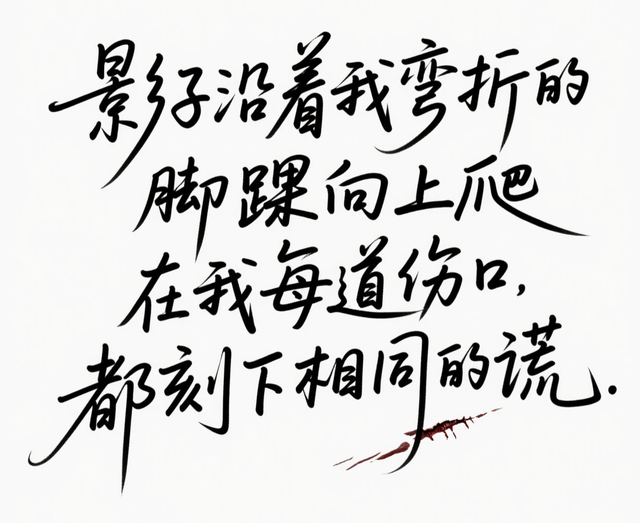 影子沿着我弯折的
脚踝向上爬
在我每道伤口,
都刻下相同的谎.